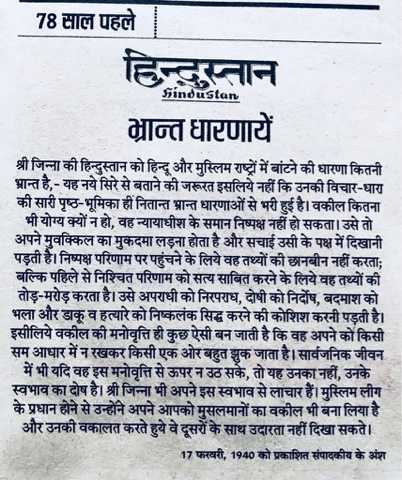 78 साल पहले
हिन्दुस्तान
Hindustan
भ्रान्त धारणायें
श्री जिन्ना की हिन्दुस्तान को हिन्दू और मुस्लिम राष्ट्रों में बांटने की धारणा कितनी
भ्रान्त है,- यह नये सिरे से बताने की जरूरत इसलिये नहीं कि उनकी विचार-धारा
की सारी पृष्ठ-भूमिका हीं नितान्त भ्रान्त धारणाओं से भरी हुई है। वकील कितना
भी योग्य क्यों न हो, वह न्यायाधीश के समान निष्पक्ष नहीं हो सकता। उसे तो
अपने मुवक्किल का मुकदमा लड़ना होता है और सचाई उसी के पक्ष में दिखानी
पड़ती है। निष्पक्ष परिणाम पर पहुंचने के लिये वह तथ्यों की छानबीन नहीं करता;
बल्कि पहिले से निश्चित परिणाम को सत्य साबित करने के लिये वह तथ्यों की
तोड़-मरोड़ करता है। उसे अपराधी को निरपराध, दोषी को निर्दोष, बदमाश को
भला और डाकू व हत्यारे को निष्कलंक सिद्ध करने की कोशिश करनी पड़ती है।
इसीलिये वकील की मनोवृत्ति ही कुछ ऐसी बन जाती है कि वह अपने को किसी
सम आधार में न रखकर किसी एक ओर बहुत झुक जाता है। सार्वजनिक जीवन
में भी यदि वह इस मनोवृत्ति से ऊपर न उठ सके, तो यह उनका नहीं, उनके
स्वभाव का दोष है। श्री जिन्ना भी अपने इस स्वभाव से लाचार हैं। मुस्लिम लीग
के प्रधान होने से उन्होंने अपने आपको मुसलमानों का वकील भी बना लिया है
और उनकी वकालत करते हुये वे दूसरों के साथ उदारता नहीं दिखा सकते।
17 फरवरी, 1940 को प्रकाशित संपादकीय के अंश